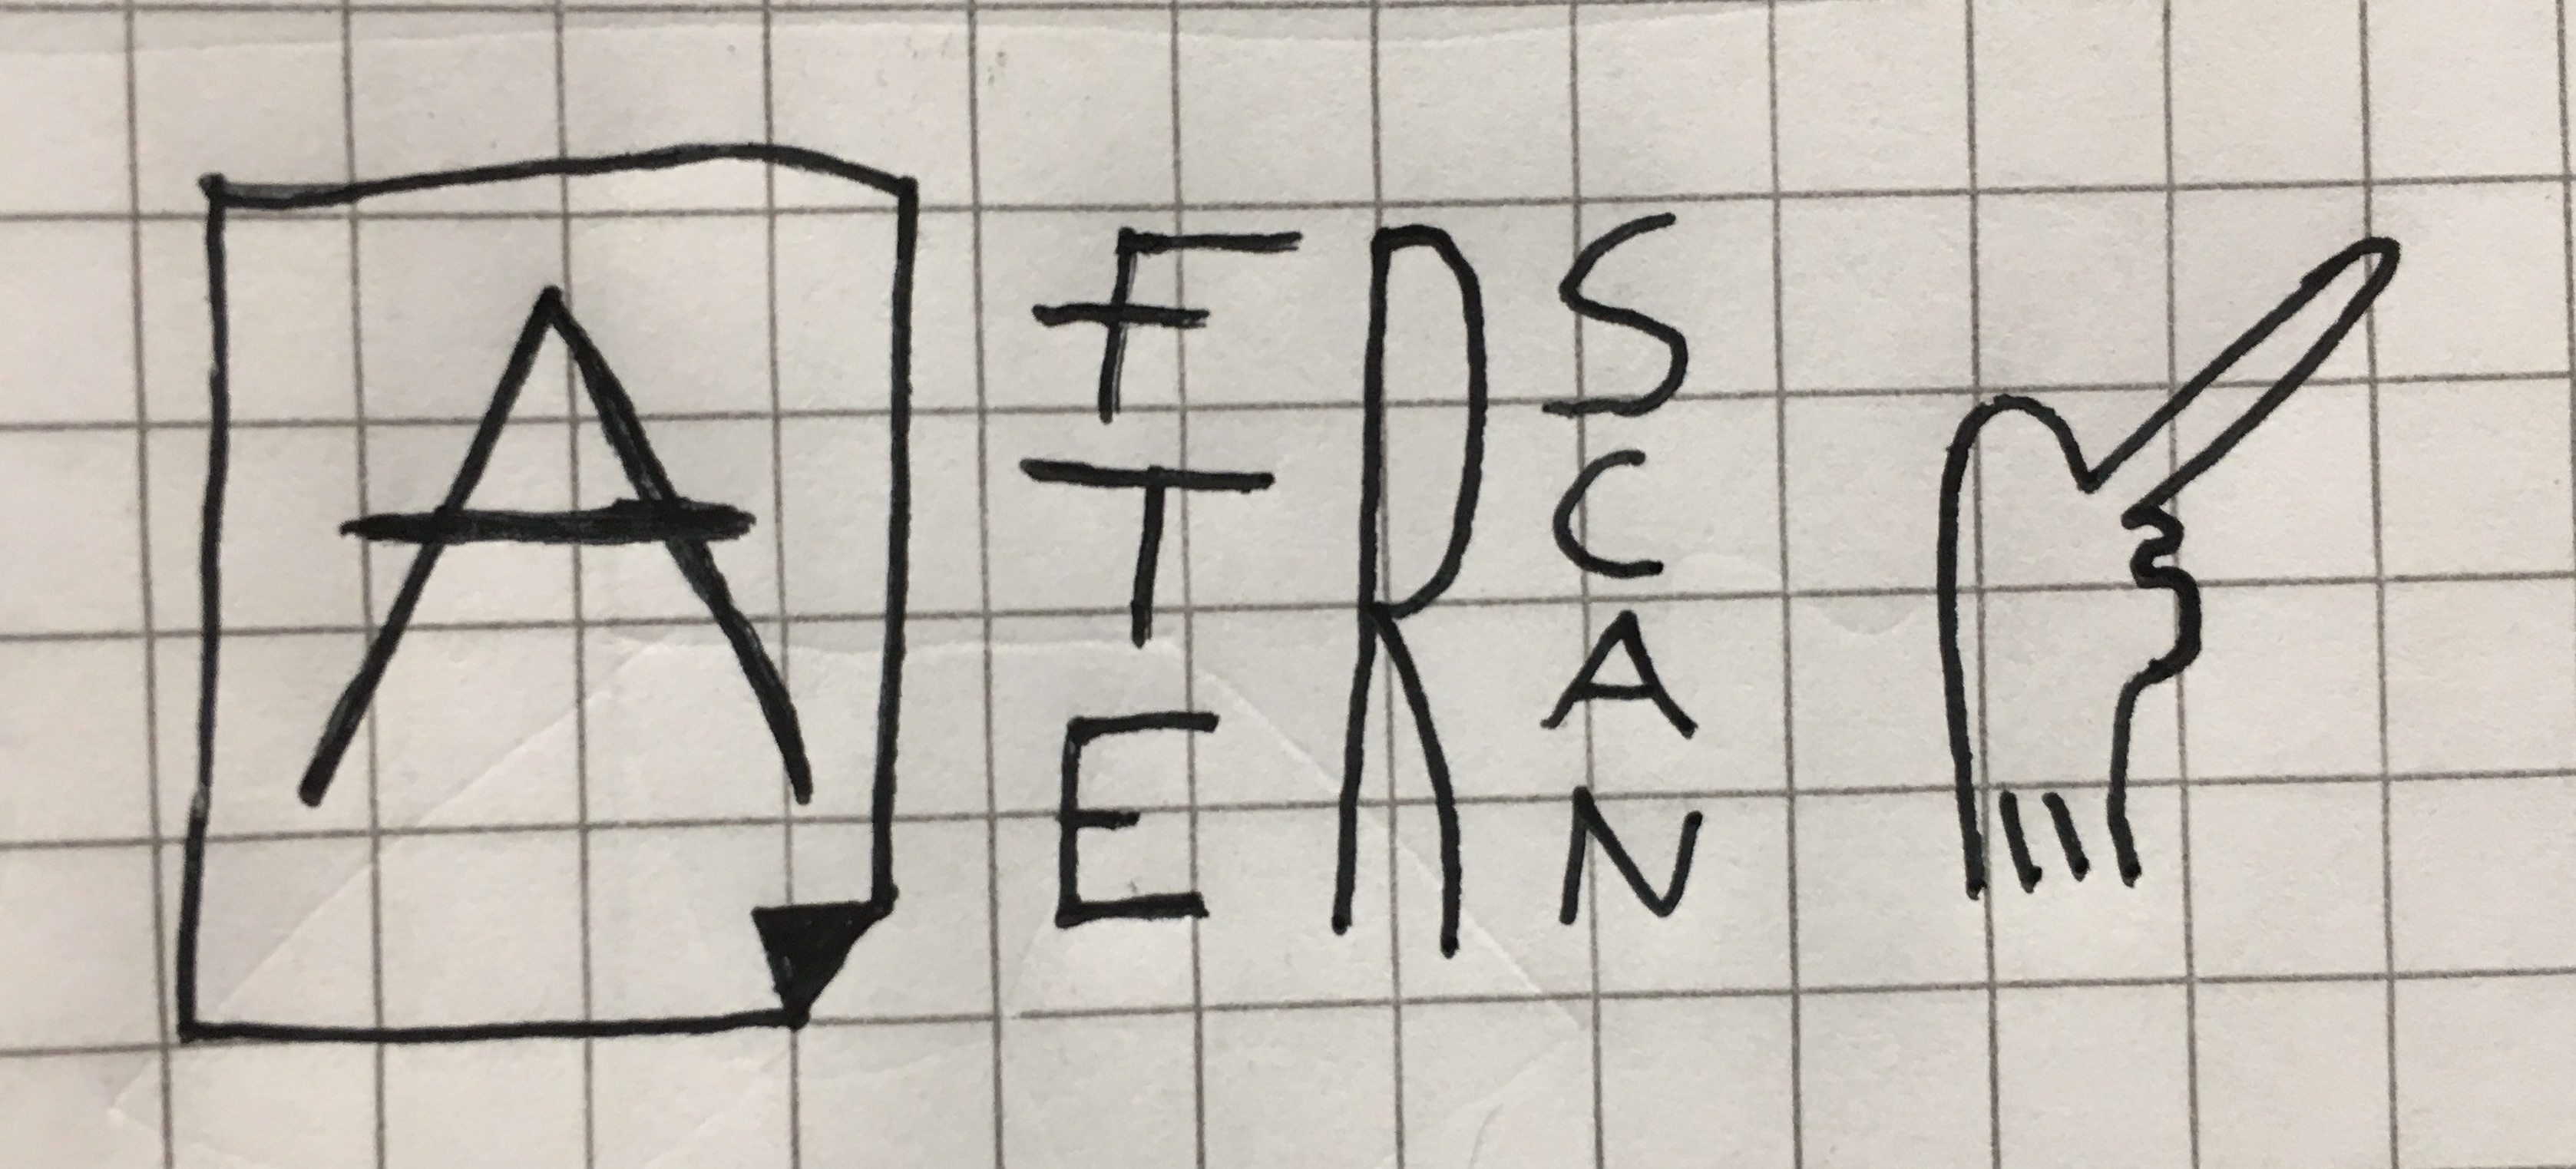 AFTER
SCAN